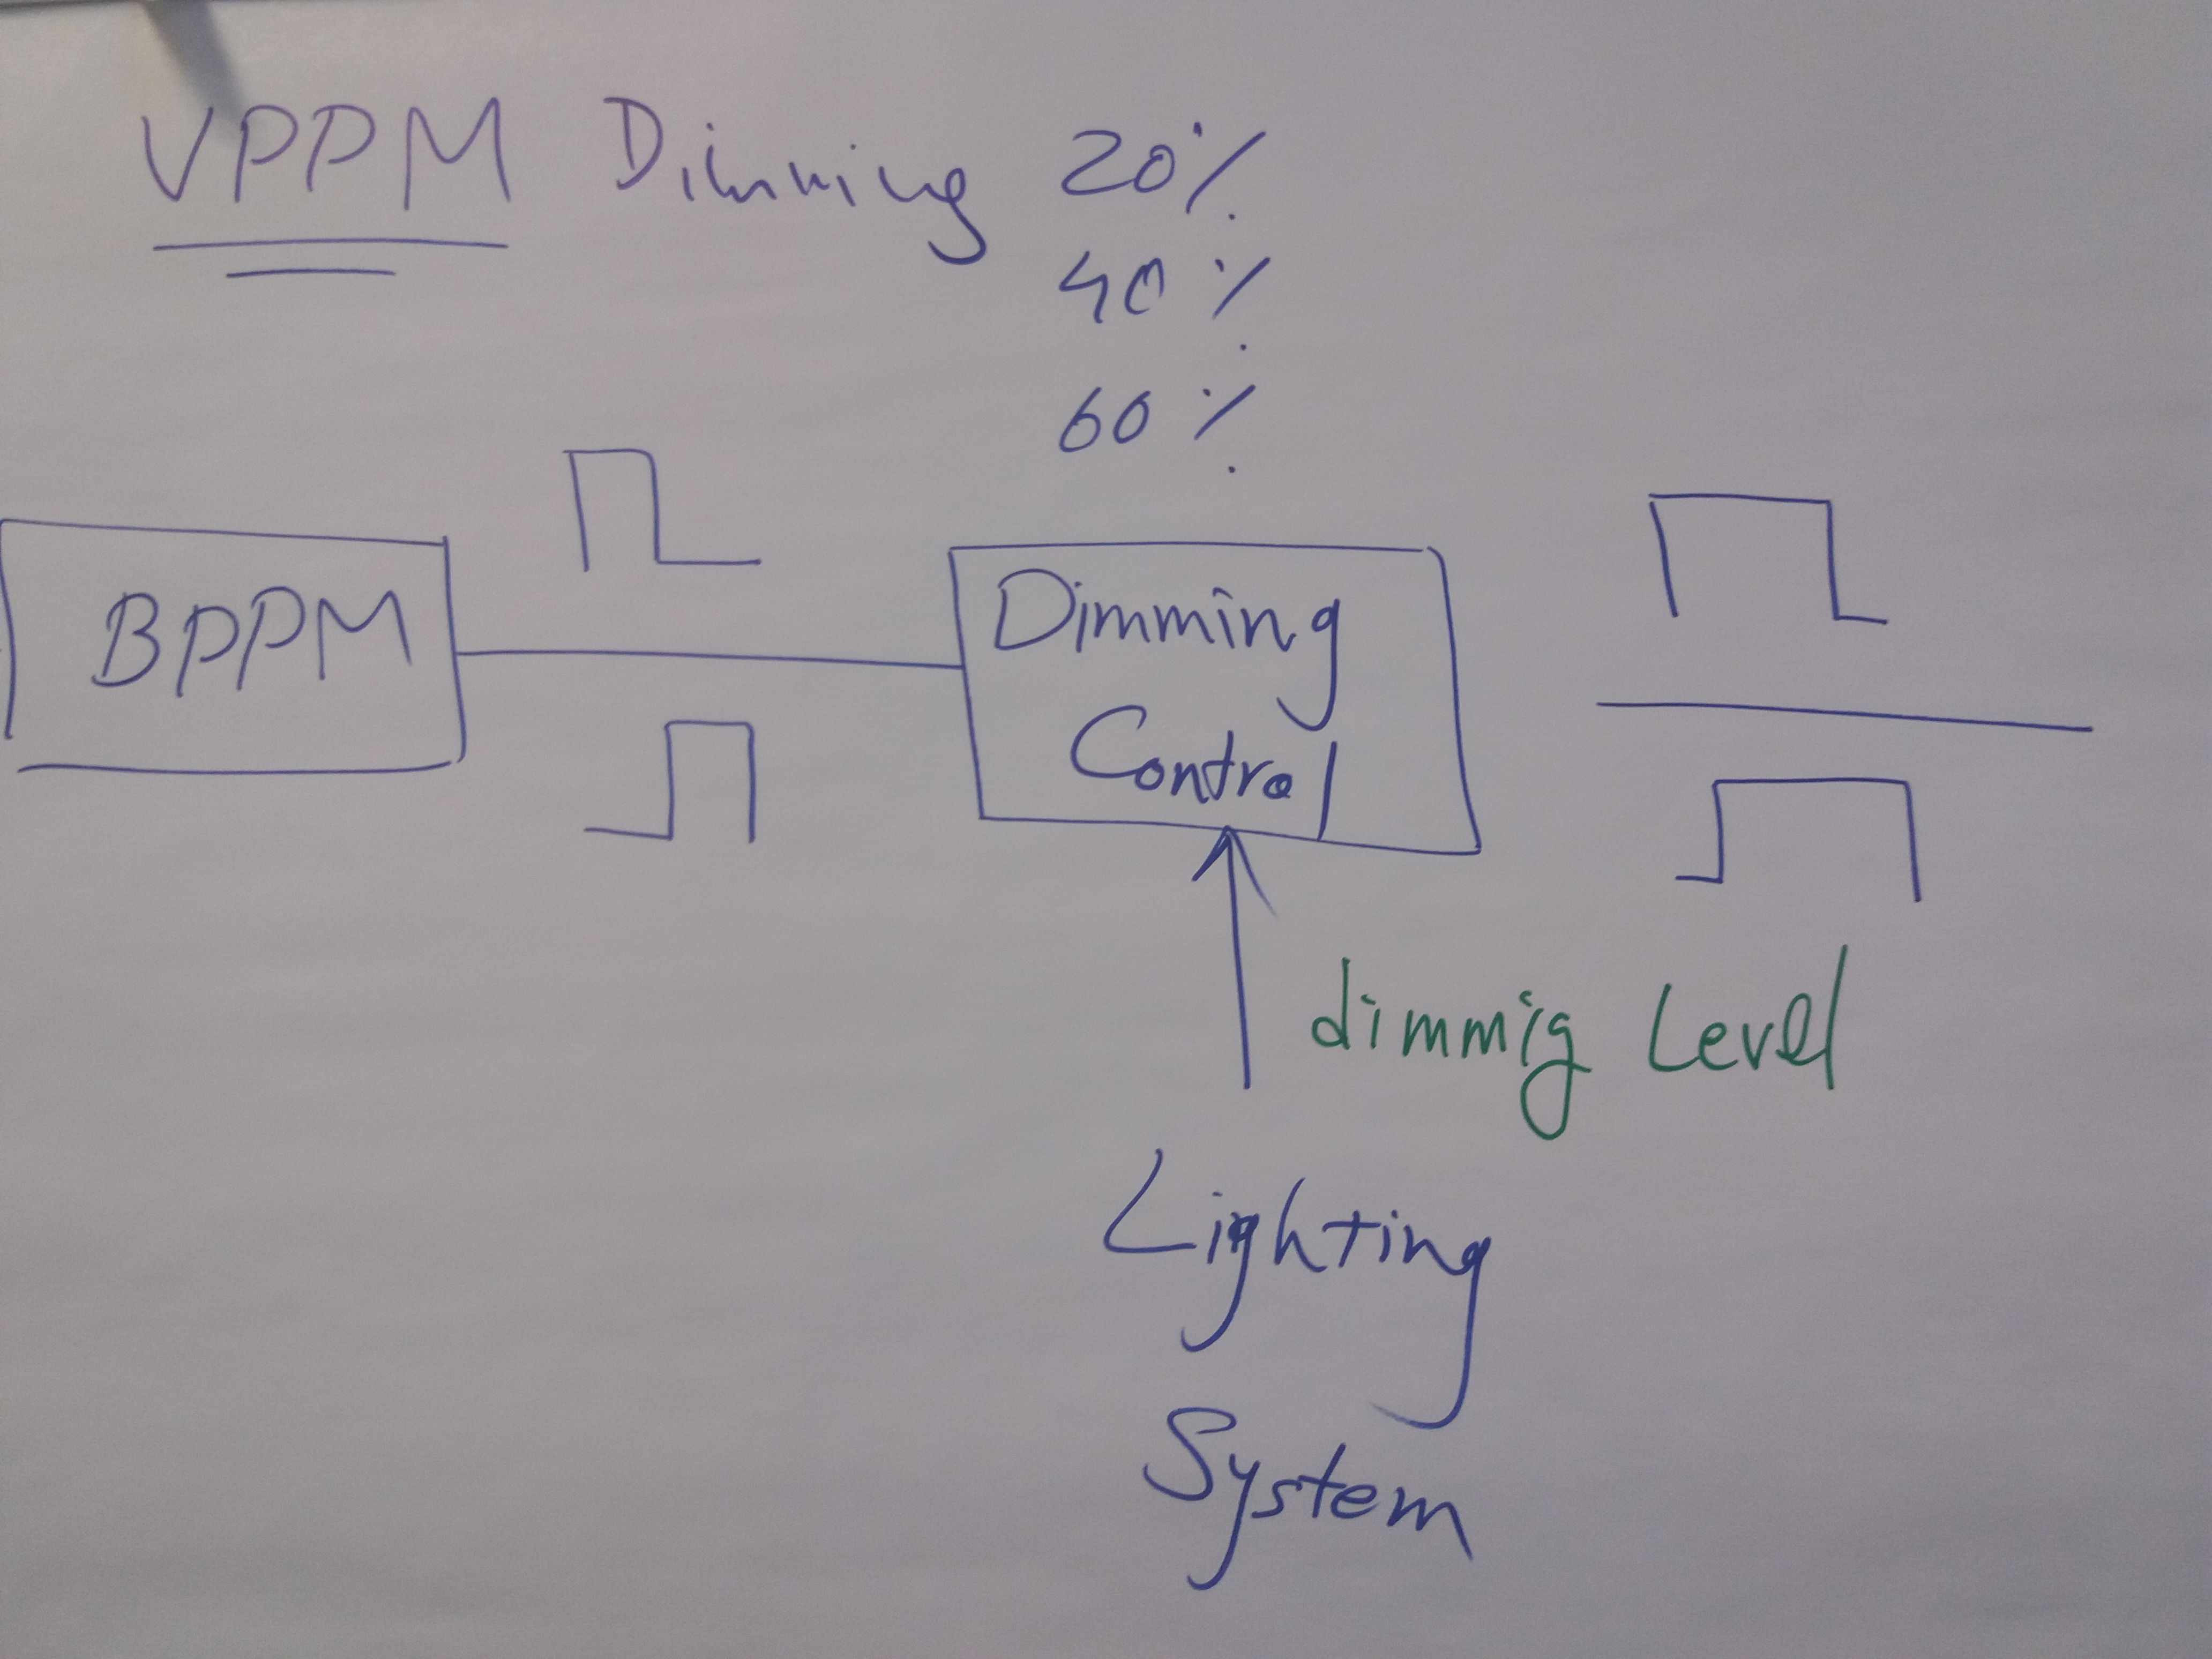 VPPM Dimming 20%
40%
60%
BPPM
Dimming
Control
dimmig Level
Lighting
System